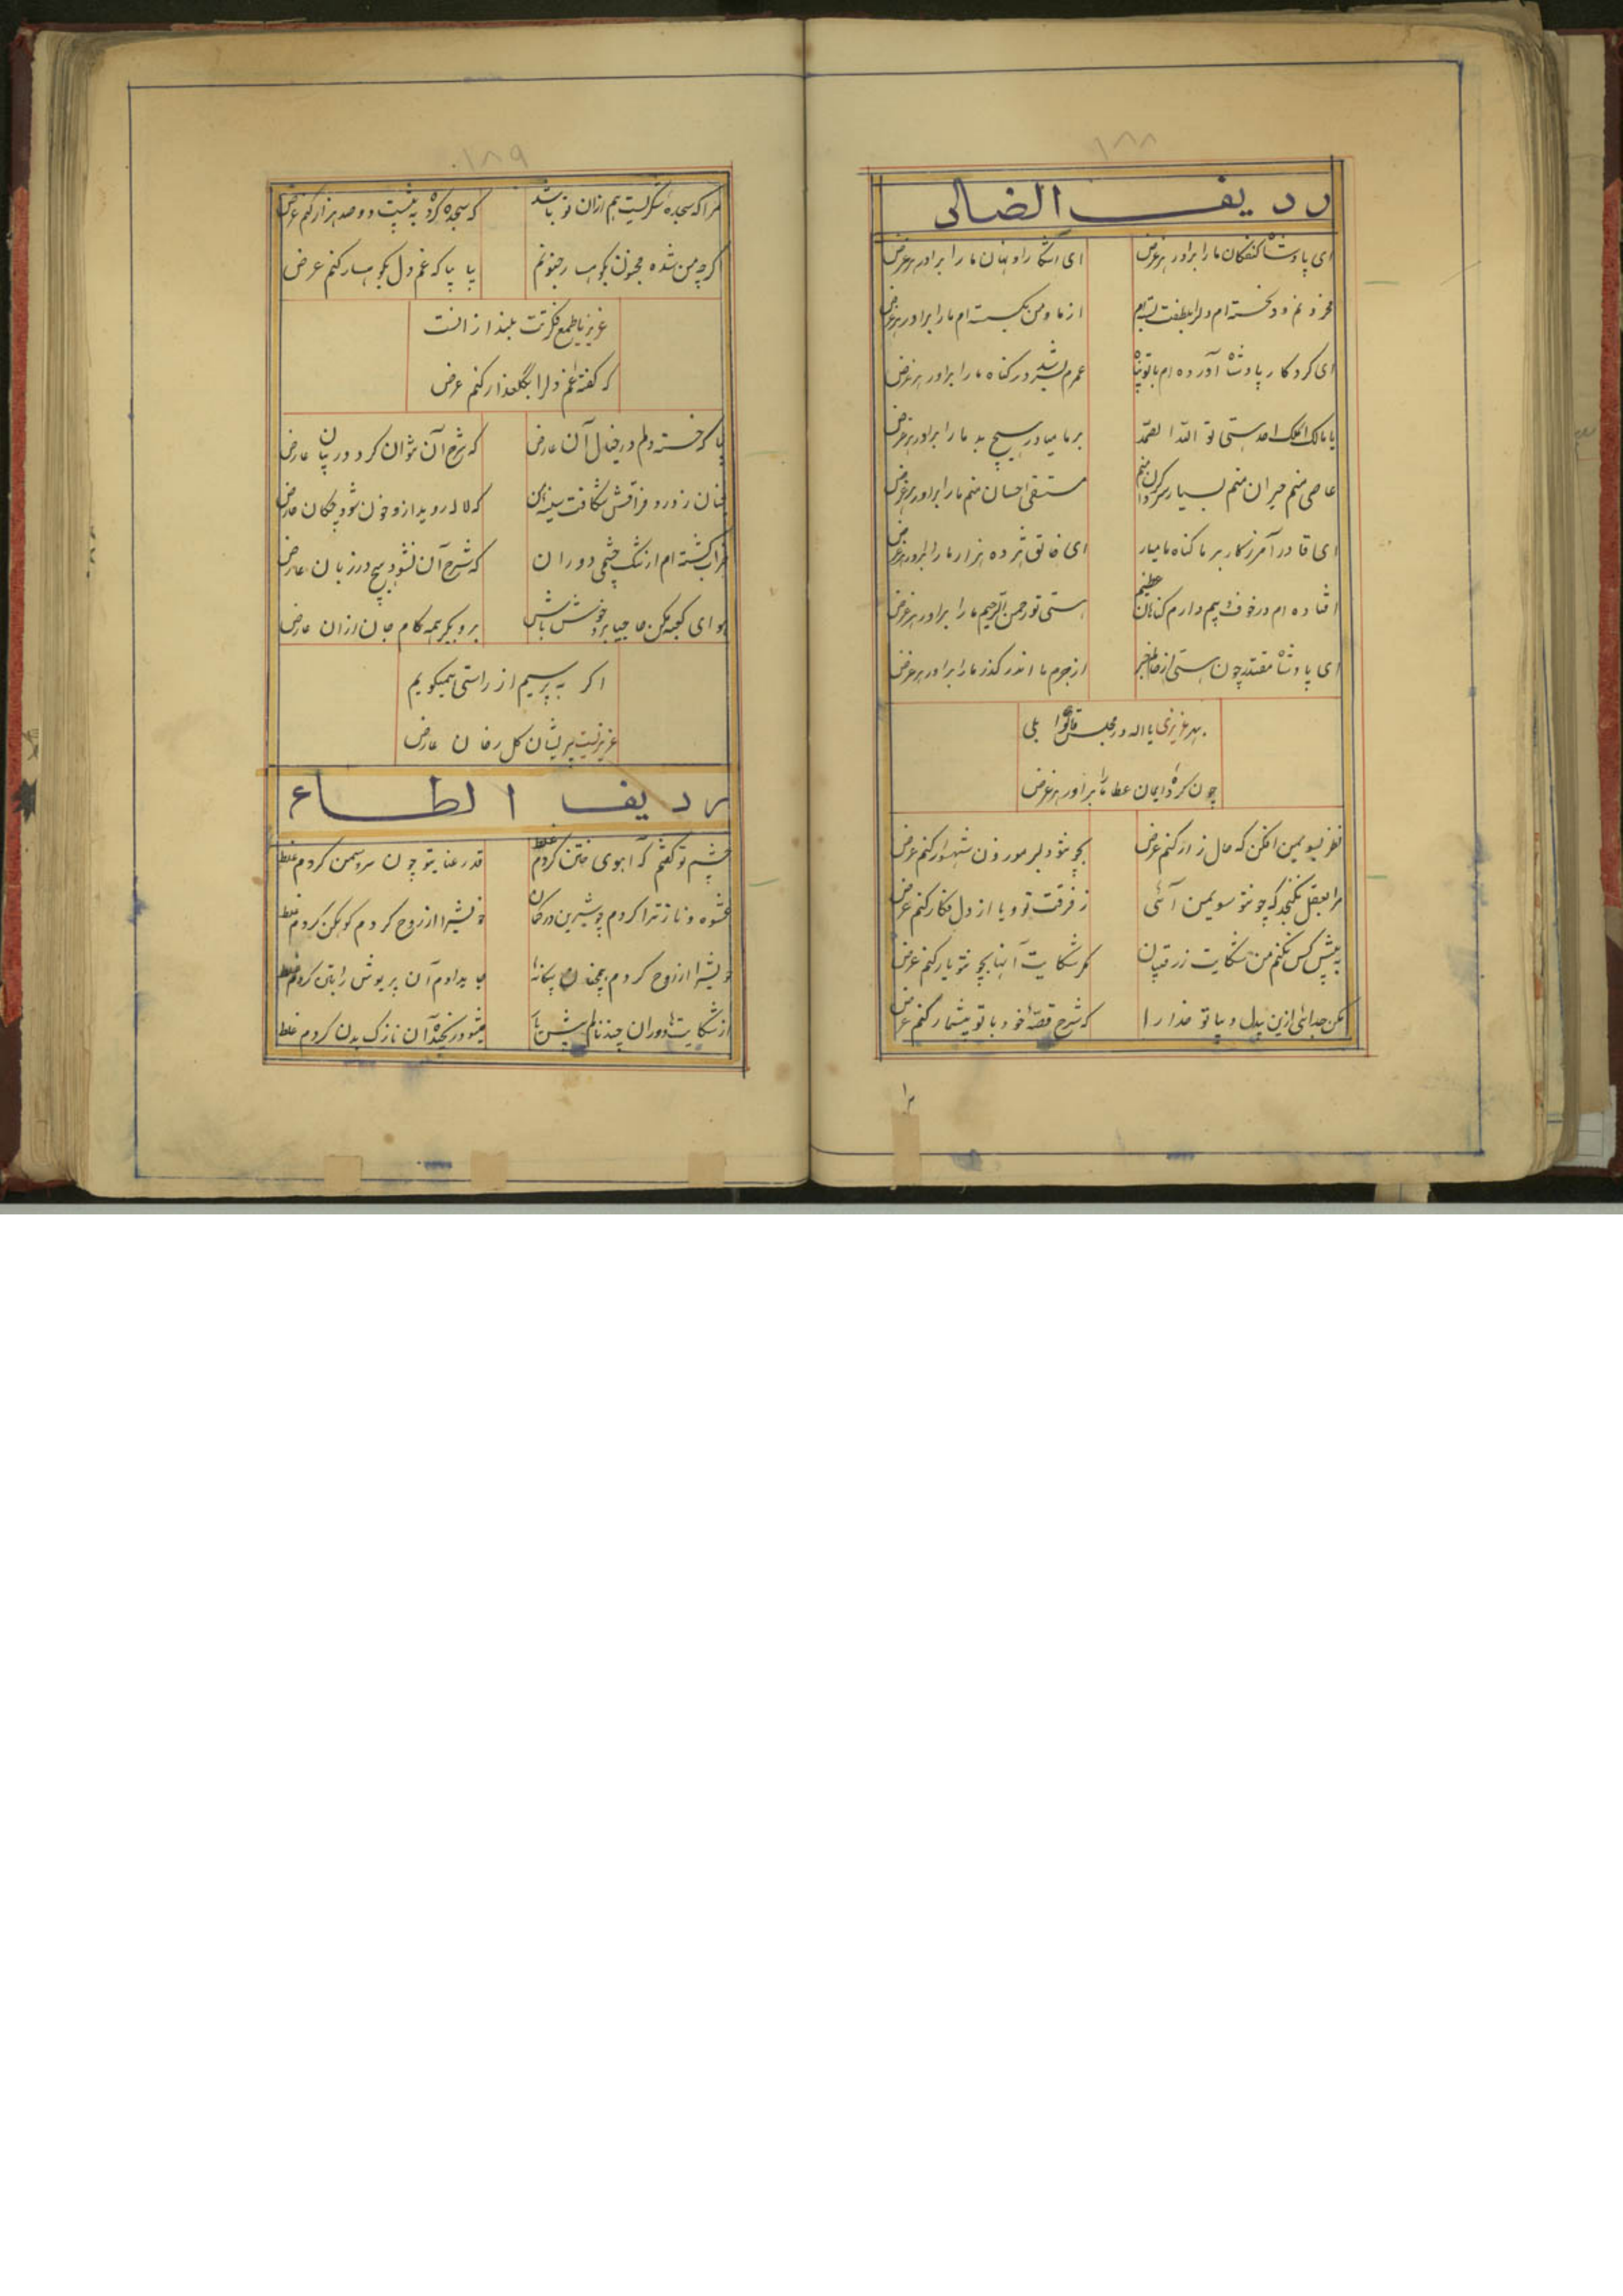 ۱۸۸
ردیف الضاد
ای پادشاه کنفکان ما را برآور هر غرض ای آشکارا و نهان ما را برآور هر غرض
محزونم و دلخسته ام دلرا بلطفت از ما و من بگسسته ام ما را برآور هر غرض
ای کردکار پادشاه آورده ام با تو پناه عمرم بشد در گناه ما را برآور هر غرض
یا مالک الملک احد هستی تو الله الصمد بر ما میاور هیچ بد ما را برآور هر غرض
عاصی منم حیران منم بسیار سرگردان منم مستسقی احسان منم ما را برآور هر غرض
ای قادر آمرزکار بر ما گناه ما میار ای خالق هژده هزار ما را برآور هر غرض
افتاده ام در خوف و بیم دارم گناهان عظیم هستی تو رحمن الرحیم ما را برآور هر غرض
ای پادشاه مقتدر چون هستی از حالم خبر از جرم ما اندر گذر ما را برآور هر غرض
بهر عزیزی یا اله در مجلس قالوا بلی
چون کرده ایمان عطا ما را برآور هر غرض
نظر بسوی من افکن که حال زار کنم عرض بچو تو دلبر موزون شهسوار کنم عرض
مرا بعقل نگنجد که چو تو سوی من آئی ز فرقت تو و یا از دل فکار کنم عرض
به پیش کس نکنم من شکایت ز رقیبان مگر شکایت آنها بچو تو یار کنم عرض
مکن جدائی ازین بیدل و بیا تو خدا را که شرح قصهٔ خود با تو بیشمار کنم عرض
۱۸۹
مرا که سجدهٔ شکریست هم ازان تو باشد که سجده کرده به پیشت دو صد هزار کنم عرض
اگرچه من شده مجنون بکوهسار جنونم بیا بیا که غم دل بکوهسار کنم عرض
عزیز با طمع فکرتت بلند از انست
که گفتهٔ غم دلرا بگلعذار کنم عرض
بیا که خسته دلم در خیال آن عارض که شرح آن نتوان کرد در بیان عارض
چنان ز درد فراقش شکافت سینه من که لاله روید ازو خون شود چکان عارض
خراب گشته ام از تنگ چشمی دوران که شرح آن نشود هیچ در زبان عارض
هوای کعبه مکن حاجیا برو خوش باش برو بگیر همه کام جان ازان عارض
اگر به پرسیم از راستی همیگویم
عزیز نیست پریشان گل رخان عارض
ردیف الطاء
چشم تو گفتم که آهوی ختن کردم غلط قد رعنای تو چون سرو سمن کردم غلط
عشوه و ناز ترا کردم چو شیرین در گمان خویش را از روح کردم کوهکن کردم غلط
خویش را از روح کردم همچنان بیگانه ها بیدادم آن پریوش را بتن کردم غلط
از شکایت های دوران چند نالم پیش یار میشود رنجیده آن نازک بدن کردم غلط